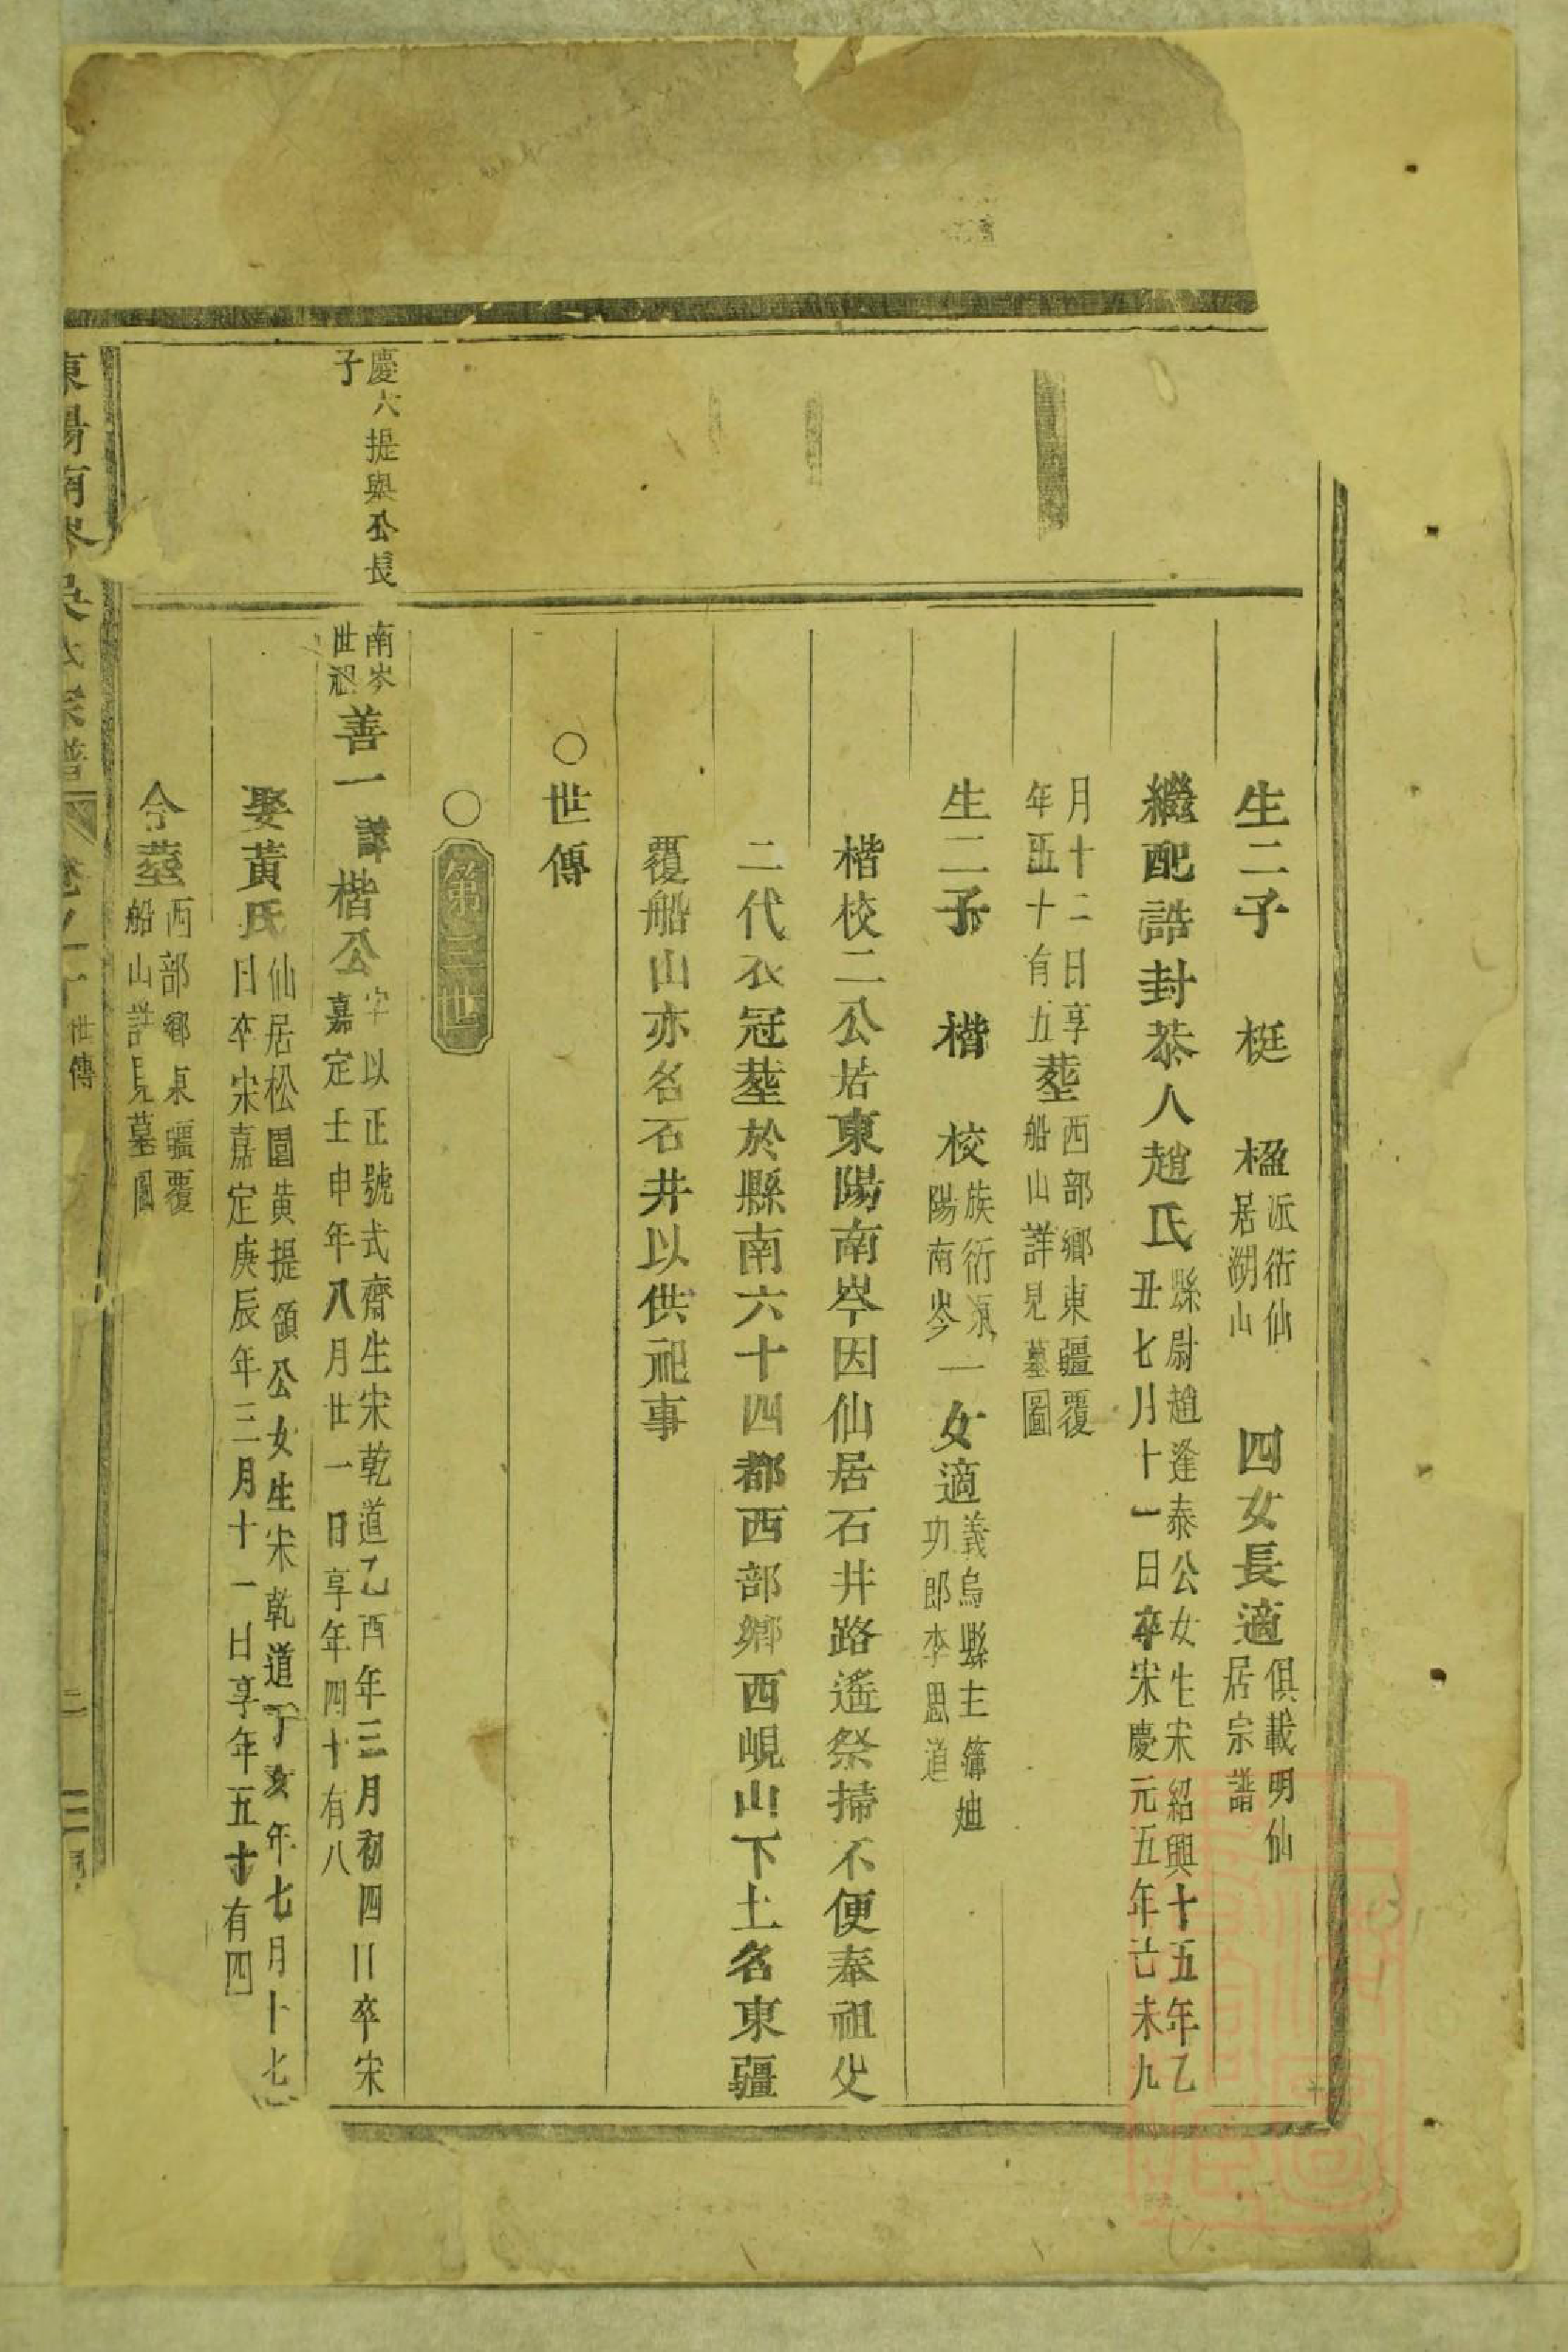 生二子 梃 楹派衍仙居湖山 四女長適俱載明仙居宗譜
繼配誥封恭人趙氏縣尉趙逢泰公女生宋紹興十五年乙丑七月十一日卒宋慶元五年己未九
月十二日享年五十有五塟西部鄉東疆覆船山詳見墓圖
生二子 楷 校族衍東陽南岑 一女適義烏縣主簿迪功郎李思道
楷校二公居東陽南岑因仙居石井路遙祭掃不便奉祖父
二代衣冠塟於縣南六十四都西部鄉西峴山下土名東疆
覆船山亦名石井以供祀事
○世傳
○第三世
慶六提舉公長子
南岑世祖善一諱楷公字以正號式齋生宋乾道乙酉年三月初四日卒宋嘉定壬申年八月廿一日享年四十有八
娶黃氏仙居松園黃提領公女生宋乾道丁亥年七月十七日卒宋嘉定庚辰年三月十一日享年五十有四
合塟西部鄉東疆覆船山詳見墓圖
東陽南岑吳氏宗譜 卷之十 世傳 三